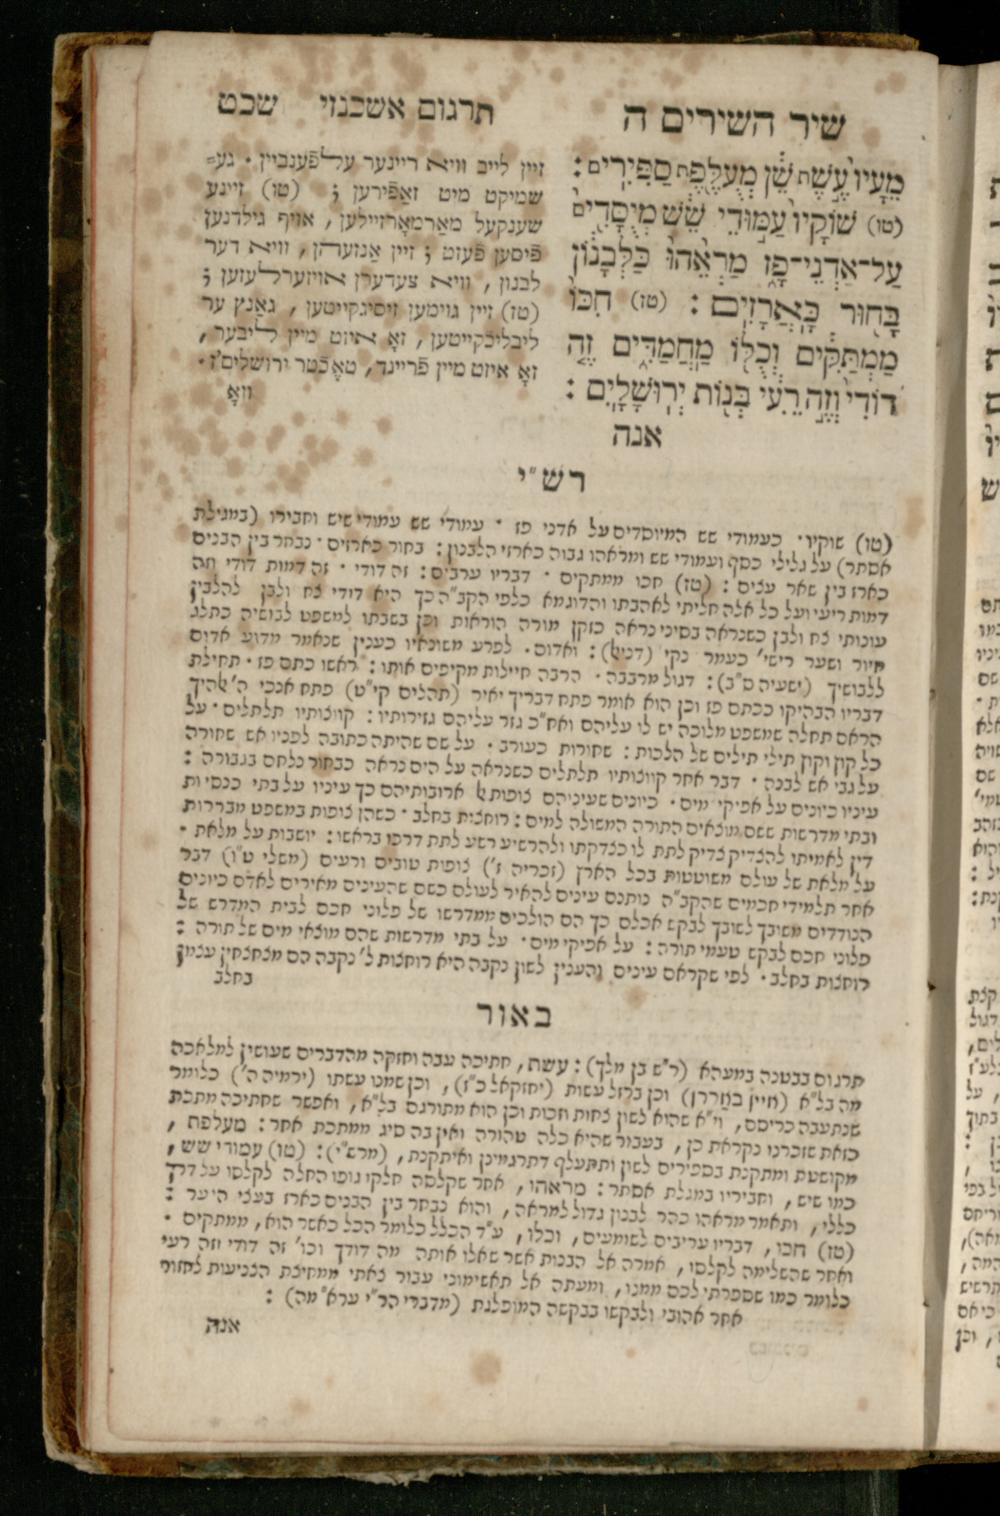 שיר השירים ה
תרגום אשכנזי שכט
מֵעָיו עֶשֶׁת שֵׁן מְעֻלֶּפֶת סַפִּירִים :
(טו) שׁוֹקָיו עַמּוּדֵי שֵׁשׁ מְיֻסָּדִים
עַל־אַדְנֵי־פָז מַרְאֵהוּ כַּלְּבָנוֹן
בָּחוּר כָּאֲרָזִים : (טז) חִכּוֹ
מַמְתַקִּים וְכֻלּוֹ מַחֲמַדִּים זֶה
דוֹדִי וְזֶה רֵעִי בְּנוֹת יְרוּשָׁלָיִם :
אנה
זיין לייב וויא ריינער עלפֿענביין . גע=
שמיקט מיט זאַפֿירען ; (טו) זיינע
שענקעל מאַרמאָרזיילען , אויף גילדנען
פֿיסען פֿעסט ; זיין אַנזעהן , וויא דער
לבנון , וויא צעדערן אויזערלעזען ;
(טז) זיין גוימען זיסיגקייטען , גאַנץ ער
ליבליכֿקייטען , זאָ איזט מיין ליבער ,
זאָ איזט מיין פֿריינד , טאָכֿטר ירושלים'ז .
וואָ
רש"י
(טו) שוקיו . כעמודי שש המיוסדים על אדני פז . עמודי שש עמודי שיש וחבירו (במגילת
אסתר) על גלילי כסף ועמודי שש ומראהו גבוה כארזי הלבנון : בחור כארזים . נבחר בין הבנים
כארז בין שאר עצים : (טז) חכו ממתקים . דבריו ערבים : זה דודי . זה דמות דודי וזה
דמות ריעי ועל כל אלה חליתי לאהבתו והדוגמא כלפי הקב"ה כך היא דודי צח ולבן להלבין
עונותי צח ולבן כשנראה בסיני נראה כזקן מורה הוראות וכן בשבתו למשפט לבושיה כתלג
חיור ושער רישי' כעמר נקי (דניאל) : ואדום . לפרע משונאיו כענין שנאמר מדוע אדום
ללבושיך (ישעיה ס"ב) : דגול מרבבה . הרבה חיילות מקיפים אותו : ראשו כתם פז . תחילת
דבריו הבהיקו ככתם פז וכן הוא אומר פתח דבריך יאיר (תהלים קי"ט) פתח אנכי ה' אלהיך
הראם תחלה שמשפט מלוכה יש לו עליהם ואח"כ גזר עליהם גזירותיו : קווצותיו תלתלים . על
כל קוץ וקוץ תילי תילים של הלכות : שחורות כעורב . על שם שהיתה כתובה לפניו אש שחורה
על גבי אש לבנה . דבר אחר קווצותיו תלתלים כשנראה על הים נראה כבחור נלחם בגבורה :
עיניו כיונים על אפיקי מים . כיונים שעיניהם צופות אל ארובותיהם כך עיניו על בתי כנסיות
ובתי מדרשות ששם מוצאים התורה המשולה למים : רוחצות בחלב . כשהן צופות במשפט מבררות
דין לאמיתו להצדיק צדיק לתת לו כצדקתו ולהרשיע רשע לתת דרכו בראשו : יושבות על מלאת .
על מלאת של עולם משוטטות בכל הארץ (זכריה ז') צופות טובים ורעים (משלי ט"ו) דבר
אחר תלמידי חכמים שהקב"ה נותנם עינים להאיר לעולם כשם שהעינים מאירים לאדם כיונים
הנודדים משובך לשובך לבקש אכלם כך הם הולכים ממדרשו של פלוני חכם לבית המדרש של
פלוני חכם לבקש טעמי תורה : על אפיקי מים . על בתי מדרשות שהם מוצאי מים של תורה :
רוחצות בחלב . לפי שקראם עינים והענין לשון נקבה היא רוחצות ל' נקבה הם מצחצחין עצמן
בחלב
באור
תרגום בבטנה במעהא (ר"ש בן מלך) : עשת , חתיכה עבה וחזקה מהדברים שעושין למלאכה
מה בל"א (חיין בחררן) וכן ברזל עשות (יחזקאל כ"ז) , וכן שמנו עשתו (ירמיה ה') כלומר
שנתעבה כריסם , וי"א שהוא לשון צחות וזכות וכן הוא מתורגם בל"א , ואפשר שחתיכה מתכת
כזאת שזכרנו נקראת כן , בעבור שהיא כלה טהורה ואין בה סיג ממתכת אחר : מעלפת ,
מקושטת ומתקנת בספירים לשון ותתעלף דתרגמינן ואיתקנת , (מרש"י) : (טו) עמודי שש ,
כמו שיש , וחביריו במגלת אסתר : מראהו , אחר שקלסה חלקי גופו החלה לקלסו על דרך
כללי , ותאמר מראהו כהר לבנון גדול למראה , והוא נבחר בין הבנים כארז בעצי היער :
(טז) חכו , דבריו עריבים לשומעים , וכלו , ע"ד הכלל כלומר הכל כאשר הוא , ממתקים .
ואחר שהשלימה לקלסו , אמרה אל הבנות אשר שאלו אותה מה דודך וכו' זה דודי וזה רעי
כלומר כמו שספרתי לכם ממנו , ומעתה אל תאשימוני עבור צאתי ממחיצת הצניעות לחזור
אחר אהובי ולבקשו בבקשה המופלגת (מדברי הר"י ערא"מה) :
אנה